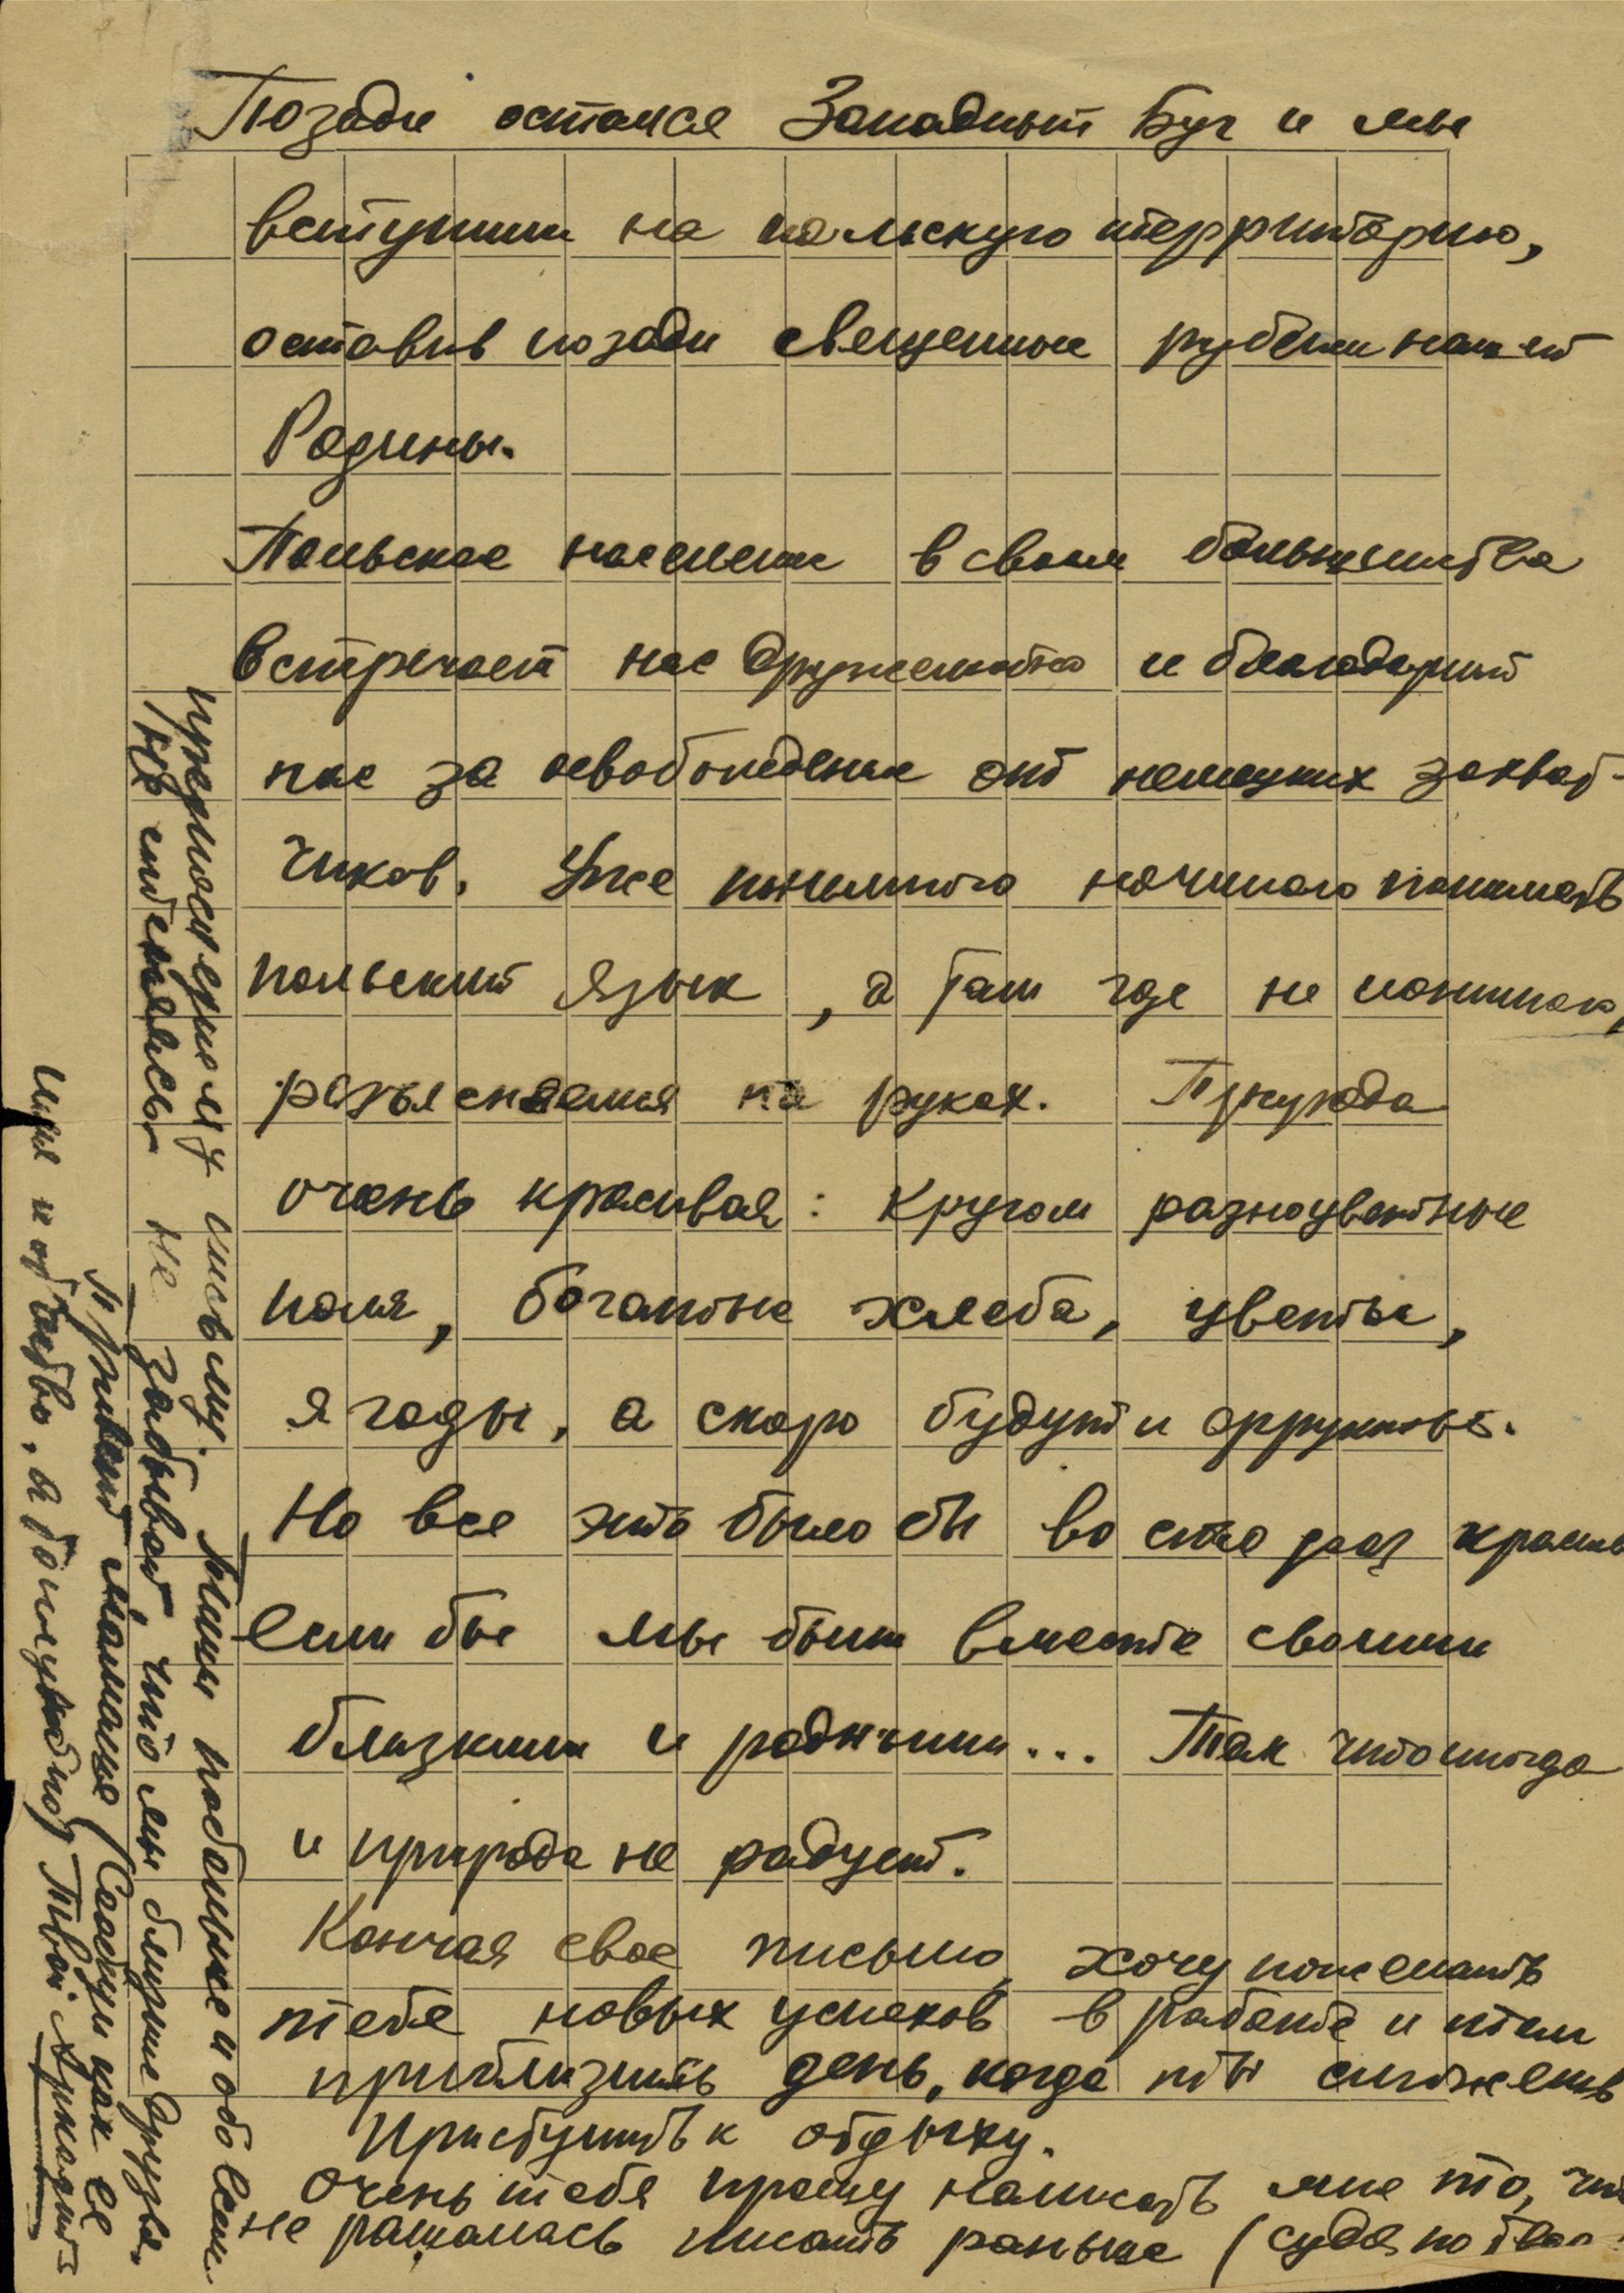 Позади остался Западный Буг и мы
вступили на польскую территорию,
оставив позади священные рубежи нашей
Родины.
Польское население в своем большинстве
встречает нас дружелюбно и благодарит
нас за освобождение от немецких захват-
чиков. Уже понемного начинаю понимать
польский язык, а там где не понимаю,
разъясняемся на руках. Природа
очень красивая: Кругом разноцветные
поля, богатые хлеба, цветы,
ягоды, а скоро будут и фрукты.
Но все это было бы во сто раз краше
если бы мы были вместе своими
близкими и родными... Так что иногда
и природа не радует.
Кончая свое письмо, хочу пожелать
тебе новых успехов в работе и тем
приблизить день, когда ты сможешь
приступить к отдыху.
Очень тебя прошу написать мне то, что
не решалась писать раньше (судя по твоему
предпоследнему письму). Пиши побольше и обо всем.
Не стесняясь. Не забывай, что мы близкие друзья.
Привет мамаше (Сообщи как ее
имя и отчество, а то неудобно) Твой Аркадий